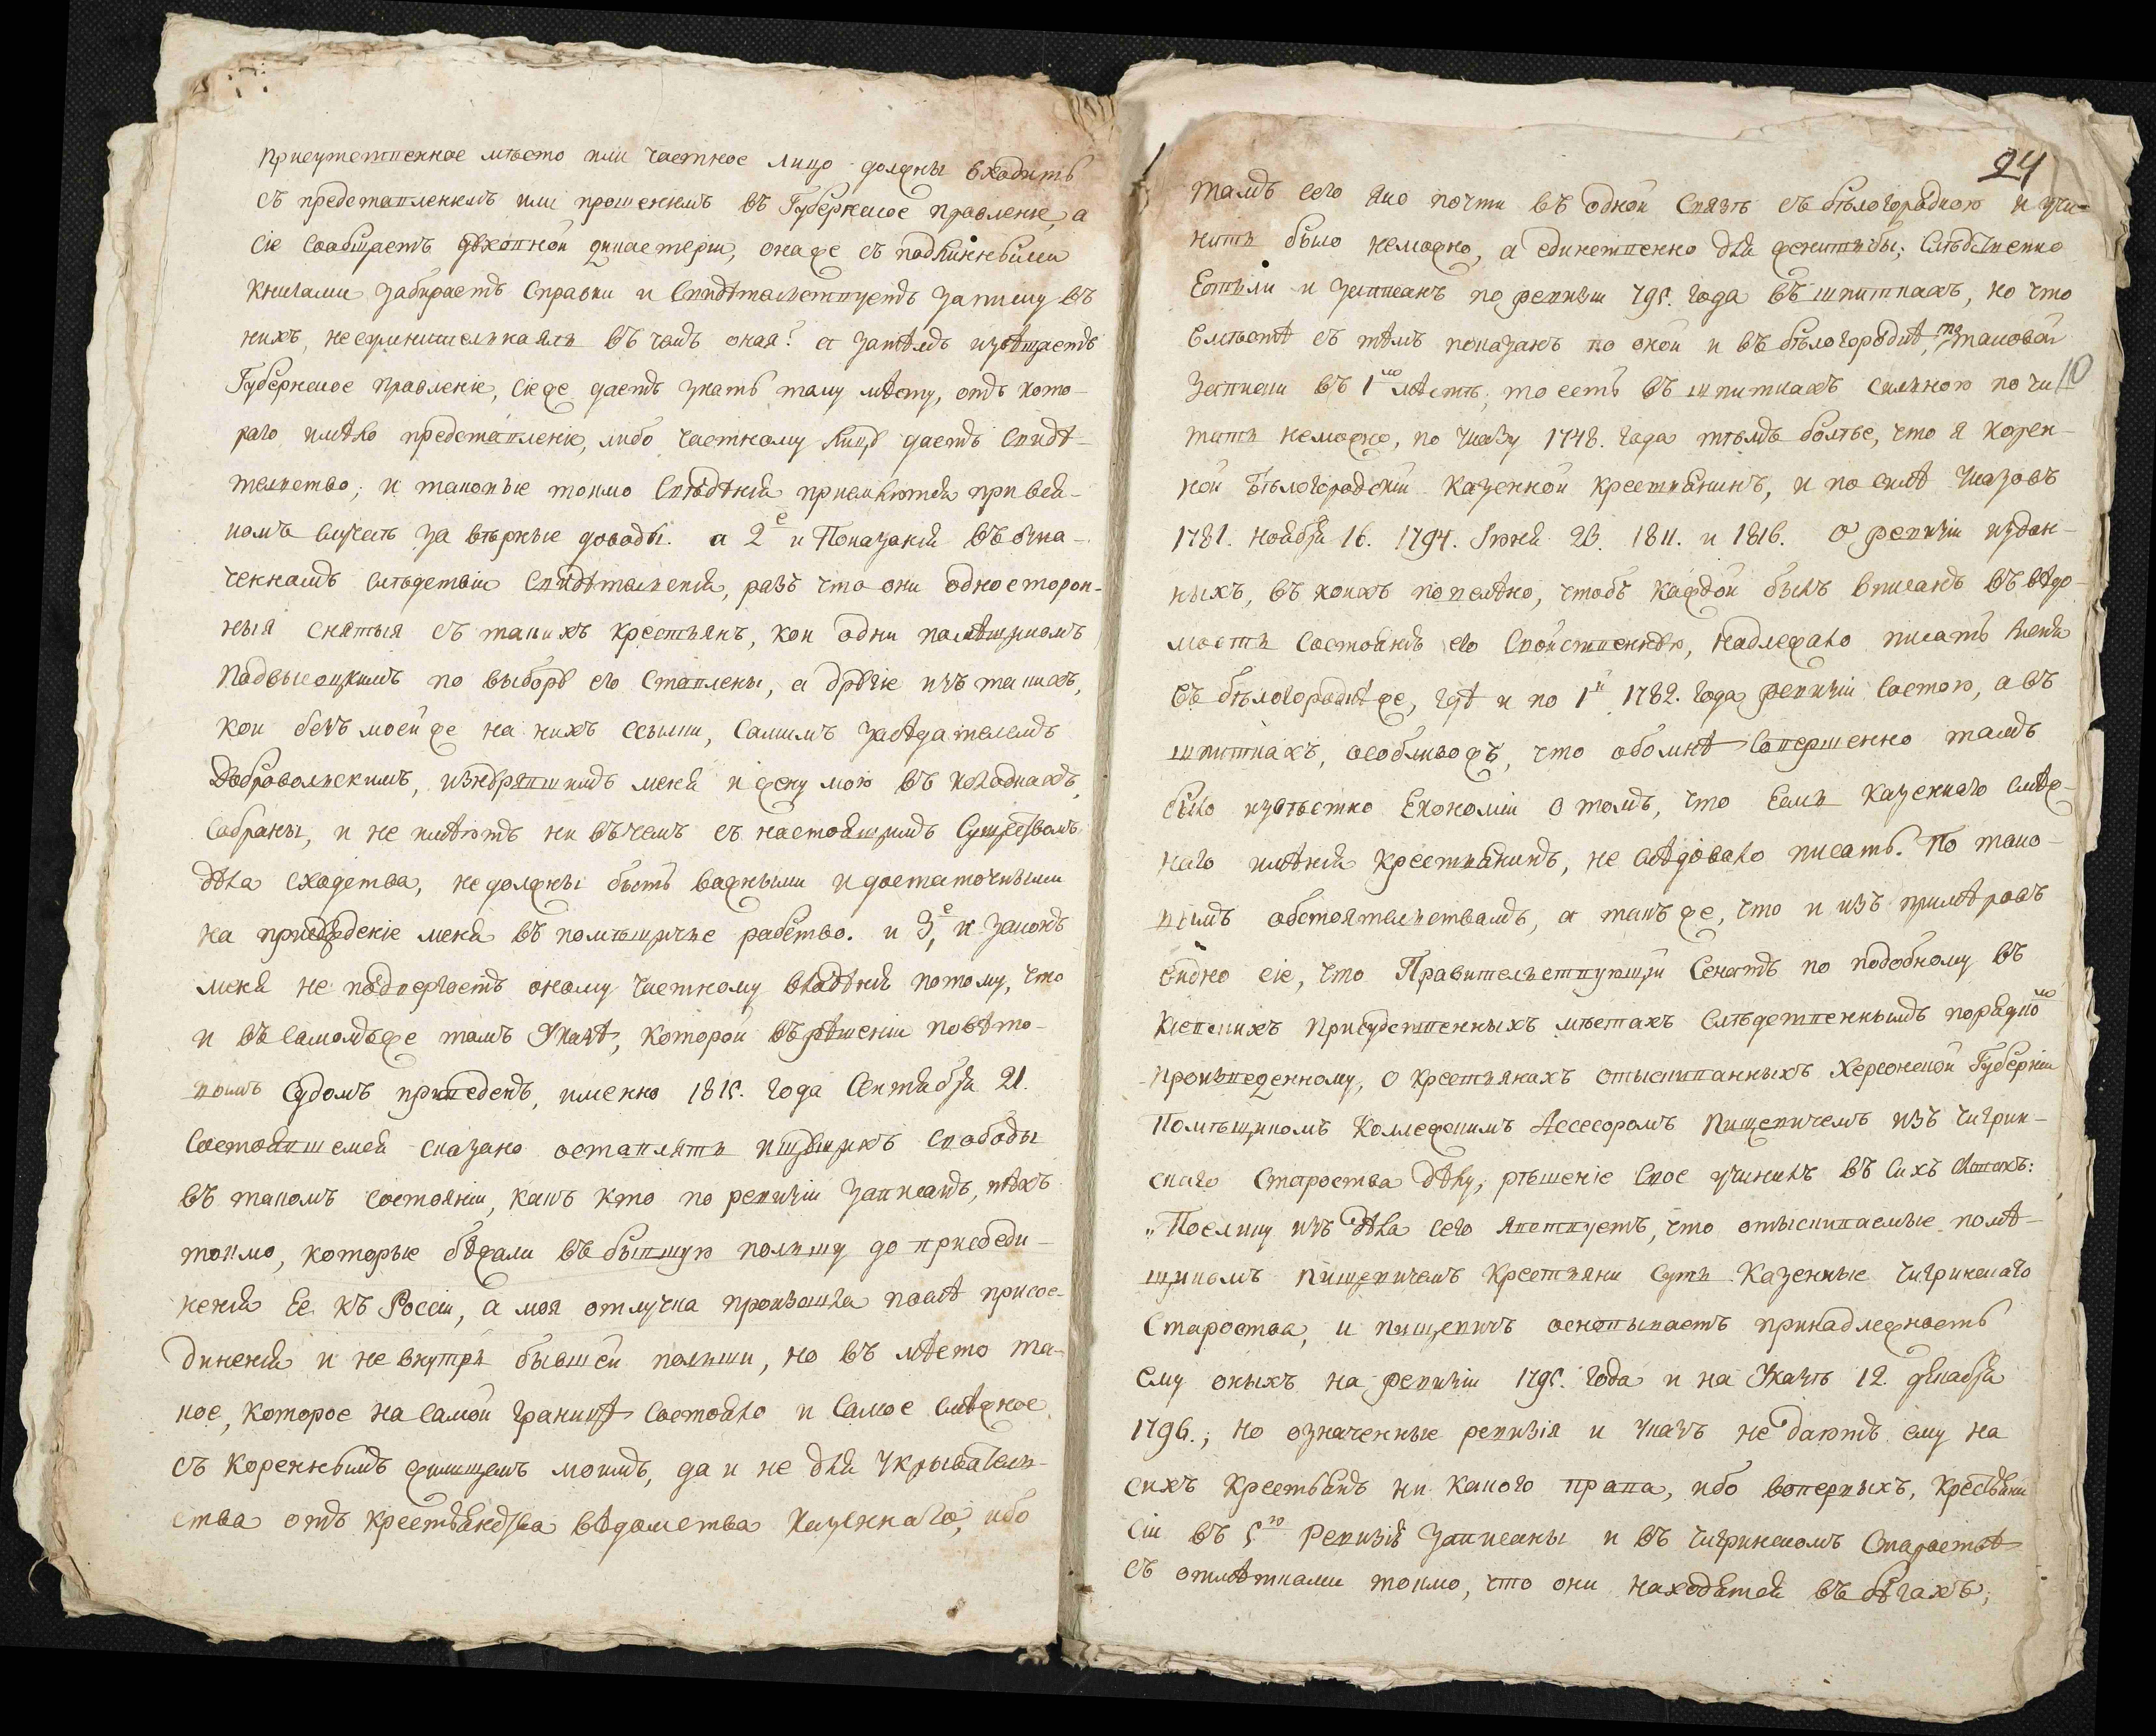 присутственное мѣсто или частное лицо должны входить
съ представленіемъ или прошеніемъ въ Губернское правленіе, а
сіе сообщаетъ духовной дикастеріи, онаже съ подлинными
книгами забираетъ справки и свидѣтельствуетъ запишу въ
нихъ, несумнительнали въ чемъ оная? а затѣмъ извѣщаетъ
Губернское правленіе, сіеже даетъ знать тому мѣсту, отъ кото-
раго имѣло представленіе, либо частному лицу даетъ свидѣ-
тельство; и таковые токмо свѣдѣнія приемлются при вся-
комъ случаѣ за вѣрные доводы. а 2е и Показанія въ озна-
ченномъ слѣдствіи свидѣтельскія, разъ что они односторон-
ныя снятыя съ такихъ крестьянъ, кои одни помѣщикомъ
Падвысоцкимъ по выбору его ставлены, а другіе изъ такихъ,
кои безъ моейже на нихъ ссылки, самимъ засѣдателемъ
Добровольскимъ, изнурявшимъ меня и жену мою въ колодкахъ,
собраны, и не имѣютъ ни въчемъ съ настоящимъ существомъ
дѣла сходства, недолжны быть важными и достаточными
на присужденіе меня въ помѣщичье рабство. и 3е, и законъ
меня не подвергаетъ оному частному владѣнію потому, что
и въ самомъже томъ Указѣ, которой въ рѣшеніи повѣто-
вымъ судомъ приведенъ, именно 1815. года Сентября 21.
состоявшемся сказано оставлять ищущихъ свободы
въ такомъ состояніи, какъ кто по ревизіи записанъ, тѣхъ
токмо, которые бѣжали въ бывшую польшу до присоеди-
ненія Ее къ Россіи, а моя отлучка произошла послѣ присое-
диненія и не внутрь бывшей польши, но въ мѣсто та-
кое, которое на самой границѣ состояло и самое смѣжное
съ кореннымъ жилищемъ моимъ, да и не для укрыватель-
ства отъ крестьянства вѣдомства казеннаго, ибо
24
тамъ сего яко почти въ одной связѣ съ бѣлогородкою и учи-
нить было неможно, а единственно для женитьбы; слѣдственно
Естьли и записанъ по ревизіи 795. года въ шпиткахъ, но что
вмѣстѣ съ тѣмъ показанъ по оной и въ бѣлогородкѣ, то таковой
10
записи въ 1мъ мѣстѣ; то есть въ шпиткахъ сильною почи-
тать неможно, по указу 1748. года тѣмъ болѣе, что я корен-
ной Бѣлогородскій казенной крестьянинъ, и по силѣ Указовъ
1781. ноября 16. 1794. Іюня 23. 1811. и 1816. о ревизіи издан-
ныхъ, въ коихъ повелѣно, чтобъ каждой былъ вписанъ въ вѣдо-
мость состоянія его свойственную, надлежало писать меня
въ бѣлогородкѣже, гдѣ и по 1й 1782. года ревизіи состою, а въ
шпиткахъ, особливожъ, что обомнѣ совершенно тамъ
было извѣстно Економіи о томъ, что Есмь казеннаго смѣж-
наго имѣнія крестьянинъ, не слѣдовало писать. По тако-
вымъ обстоятельствамъ, а такъже, что и изъ примѣровъ
видно сіе, что Правительствующій Сенатъ по подобному въ
Кіевскихъ присудственныхъ мѣстахъ слѣдственнымъ порядкомъ
произведенному, о крестьянахъ отыскиванныхъ Херсонской Губерніи
Помѣщикомъ Коллежскимъ Ассесоромъ Пищевичемъ изъ чигрин-
скаго староства дѣлу, рѣшеніе свое учинилъ въ сихъ словахъ:
„Поелику изъ дѣла сего явствуетъ, что отыскиваемые помѣ-
щикомъ Пищевичемъ крестьяни суть казенные чигринскаго
Староства, и пищевичъ основываетъ принадлежность
ему оныхъ на ревизіи 1795. года и на Указѣ 12 декабря
1796.; но означенные ревизія и указъ не даютъ ему на
сихъ крестьянъ ни какого права, ибо вопервыхъ, крестьяни
сіи въ 5ю Ревизію записаны и въ чигринскомъ Староствѣ
съ отмѣтками токмо, что они находятся въ бѣгахъ;